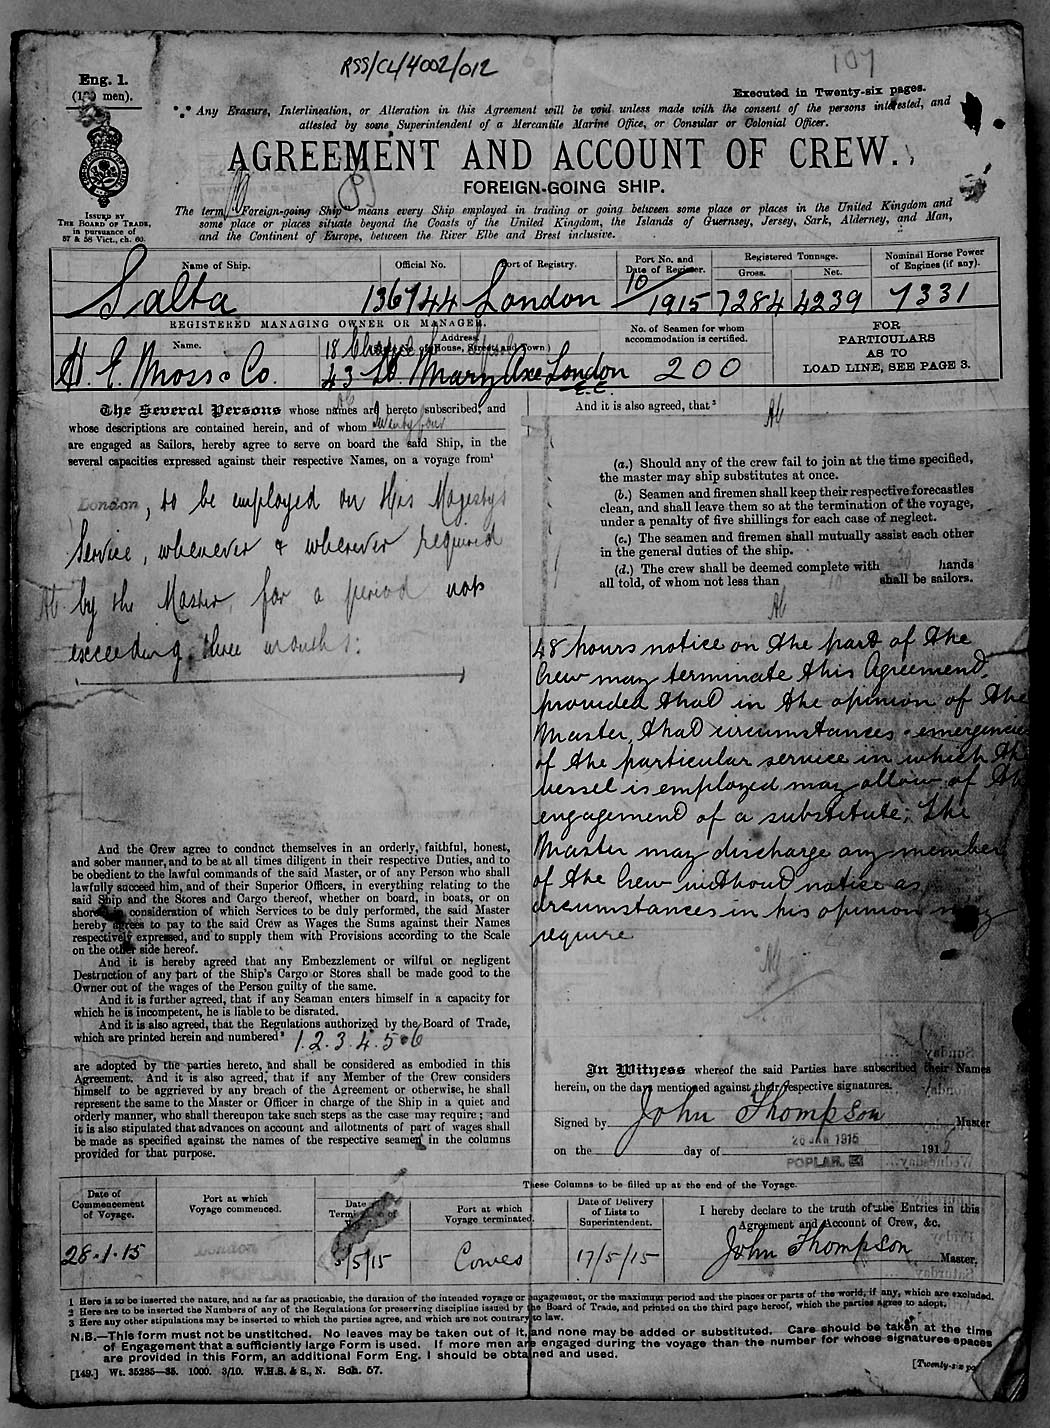 RSS/CL/4002/012
107
Eng. 1.
(150 men).
Executed in Twenty-six pages.
*** Any Erasure, Interlineation, or Alteration in this Agreement will be void unless made with the consent of the persons interested, and
attested by some Superintendent of a Mercantile Marine Office, or Consular or Colonial Officer.
AGREEMENT AND ACCOUNT OF CREW.
FOREIGN-GOING SHIP.
ISSUED BY
THE BOARD OF TRADE,
in pursuance of
57 & 58 Vict., ch. 60.
The term "Foreign-going Ship" means every Ship employed in trading or going between some place or places in the United Kingdom and
some place or places situate beyond the Coasts of the United Kingdom, the Islands of Guernsey, Jersey, Sark, Alderney, and Man,
and the Continent of Europe, between the River Elbe and Brest inclusive.
Name of Ship. Official No. Port of Registry. Port No. and Date of Register. Registered Tonnage. Gross. Net. Nominal Horse Power of Engines (if any).
Salta 136744 London 10/1915 7284 4239 1331
REGISTERED MANAGING OWNER OR MANAGER.
Name. Address (State No. of House, Street, and Town)
No. of Seamen for whom accommodation is certified.
FOR PARTICULARS AS TO LOAD LINE, SEE PAGE 3.
H. E. Moss & Co. 18
43 St. Mary Axe London E.C. 200
The Several Persons whose names are hereto subscribed, and
whose descriptions are contained herein, and of whom twenty four
are engaged as Sailors, hereby agree to serve on board the said Ship, in the
several capacities expressed against their respective Names, on a voyage from¹
London, to be employed on His Magestys
Service, whenever & wherever required
by the Master, for a period not
exceeding three months.
And the Crew agree to conduct themselves in an orderly, faithful, honest,
and sober manner, and to be at all times diligent in their respective Duties, and to
be obedient to the lawful commands of the said Master, or of any Person who shall
lawfully succeed him, and of their Superior Officers, in everything relating to the
said Ship and the Stores and Cargo thereof, whether on board, in boats, or on
shore; in consideration of which Services to be duly performed, the said Master
hereby agrees to pay to the said Crew as Wages the Sums against their Names
respectively expressed, and to supply them with Provisions according to the Scale
on the other side hereof.
And it is hereby agreed that any Embezzlement or wilful or negligent
Destruction of any part of the Ship's Cargo or Stores shall be made good to the
Owner out of the wages of the Person guilty of the same.
And it is further agreed, that if any Seaman enters himself in a capacity for
which he is incompetent, he is liable to be disrated.
And it is also agreed, that the Regulations authorized by the Board of Trade,
which are printed herein and numbered² 1. 2. 3. 4. 5 & 6
are adopted by the parties hereto, and shall be considered as embodied in this
Agreement. And it is also agreed, that if any Member of the Crew considers
himself to be aggrieved by any breach of the Agreement or otherwise, he shall
represent the same to the Master or Officer in charge of the Ship in a quiet and
orderly manner, who shall thereupon take such steps as the case may require; and
it is also stipulated that advances on account and allotments of part of wages shall
be made as specified against the names of the respective seamen in the columns
provided for that purpose.
And it is also agreed, that³
(a.) Should any of the crew fail to join at the time specified,
the master may ship substitutes at once.
(b.) Seamen and firemen shall keep their respective forecastles
clean, and shall leave them so at the termination of the voyage,
under a penalty of five shillings for each case of neglect.
(c.) The seamen and firemen shall mutually assist each other
in the general duties of the ship.
(d.) The crew shall be deemed complete with hands
all told, of whom not less than 10 shall be sailors.
48 hours notice on the part of the
Crew may terminate this Agreement,
provided that in the opinion of the
Master, that circumstances & emergencies
of the particular service in which the
vessel is employed may allow of the
engagement of a substitute; The
Master may discharge any member
of the Crew without notice as
circumstances in his opinion may
require
In Witness whereof the said Parties have subscribed their Names
herein, on the days mentioned against their respective signatures.
Signed by John Thompson Master
on the day of 1915
26 JAN 1915
POPLAR. E
These Columns to be filled up at the end of the Voyage.
Date of Commencement of Voyage. Port at which Voyage commenced. Date of Termination of Voyage. Port at which Voyage terminated. Date of Delivery of Lists to Superintendent. I hereby declare to the truth of the Entries in this Agreement and Account of Crew, &c.
28.1.15 London POPLAR /5/15 Cowes 17/5/15 John Thompson Master.
1 Here is to be inserted the nature, and as far as practicable, the duration of the intended voyage or engagement, or the maximum period and the places or parts of the world, if any, which are excluded.
2 Here are to be inserted the Numbers of any of the Regulations for preserving discipline issued by the Board of Trade, and printed on the third page hereof, which the parties agree to adopt.
3 Here any other stipulations may be inserted to which the parties agree, and which are not contrary to law.
N.B.—This form must not be unstitched. No leaves may be taken out of it, and none may be added or substituted. Care should be taken at the time
of Engagement that a sufficiently large Form is used. If more men are engaged during the voyage than the number for whose signatures spaces
are provided in this Form, an additional Form Eng. 1 should be obtained and used.
[149.] Wt. 35285—35. 1000. 3/10. W.H.S. & S., N. Sch. 57.
[Twenty-six